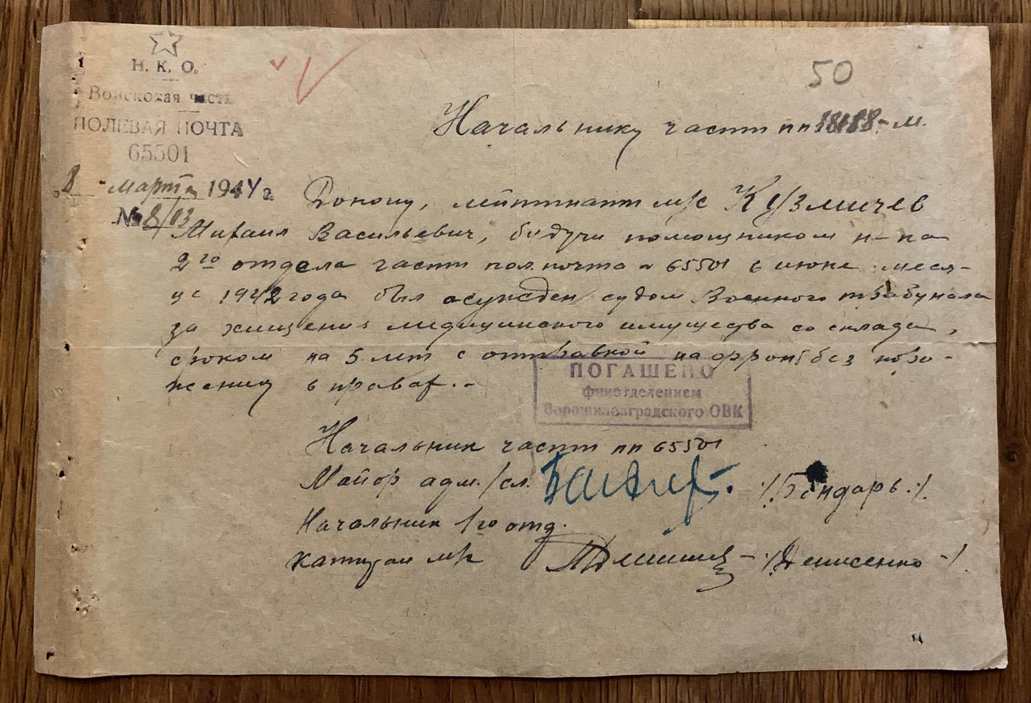 Н. К. О.
Войсковая часть
ПОЛЕВАЯ ПОЧТА
65501
"8" Марта 1944 г.
№ 8/03
50
Начальнику части пп 18188-м.
Доношу, лейтинант м/с Кузмичев
Михаил Васильевич, будучи помощником н-ка
2го отдела части пол. почта № 65501 в июне меся-
це 1942 года был осужден судом Военного трибунала
за хищения медицинского имущества со склада,
сроком на 5 лет с отправкой на фронт без пора-
жения в правах.-
ПОГАШЕНО
финотделением
Ворошиловградского ОВК
Начальник части пп 65501
Майор адм./сл. /Бондарь/.
Начальник 1го отд.
капитан м/с /Денисенко/.